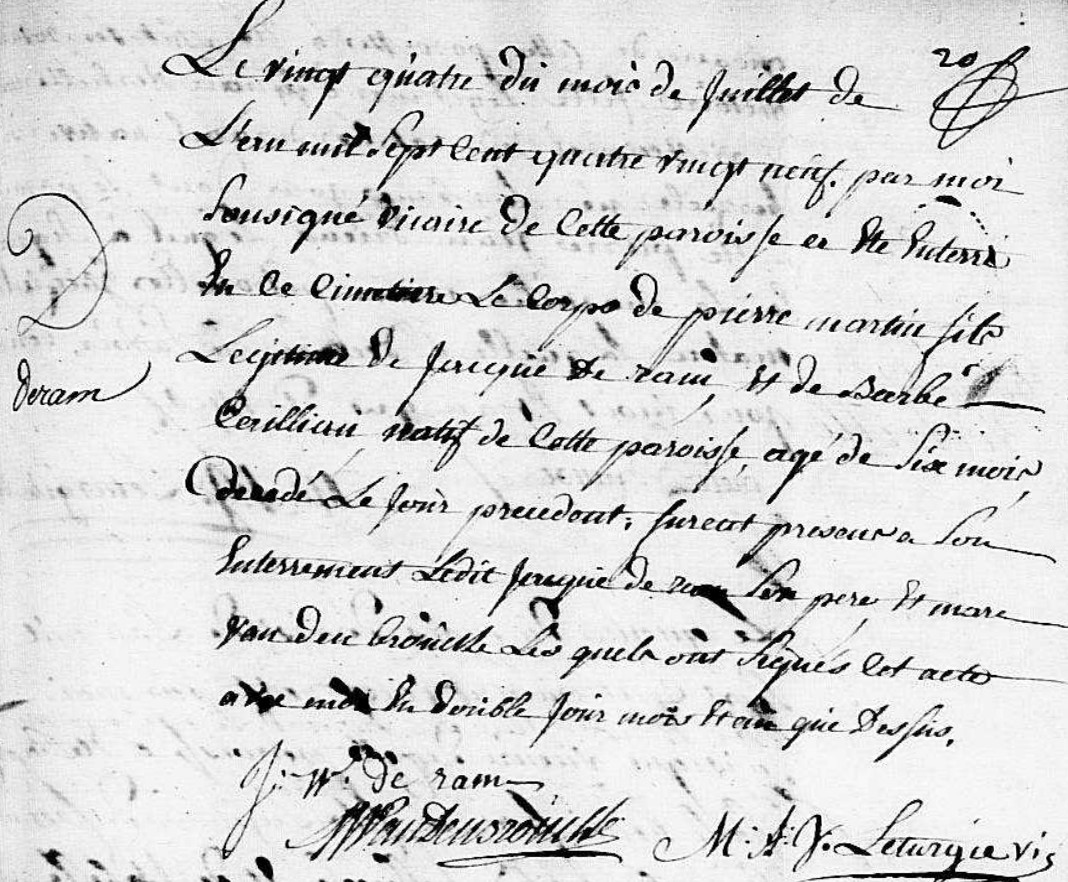 20
Le vingt quatre du mois de juillet de
L'an mil sept cent quatre vingt neuf. par moi
sousigné vicaire de cette paroisse a ete enterré
en ce cimetiere Le corps de pierre martin fils
Legitime de jacque de ram, et de Barbe
deram
natif de cette paroisse agé de six mois,
decedé Le jour precedent, furent presens a son
enterrement Ledit jacque de ram son pere, et marc
van den broucke Les quels ont signés cet acte
avec moi en double jour mois et an que dessus.
J: W: de ram
VandenBroucke
M: A: J. Leturgie vic